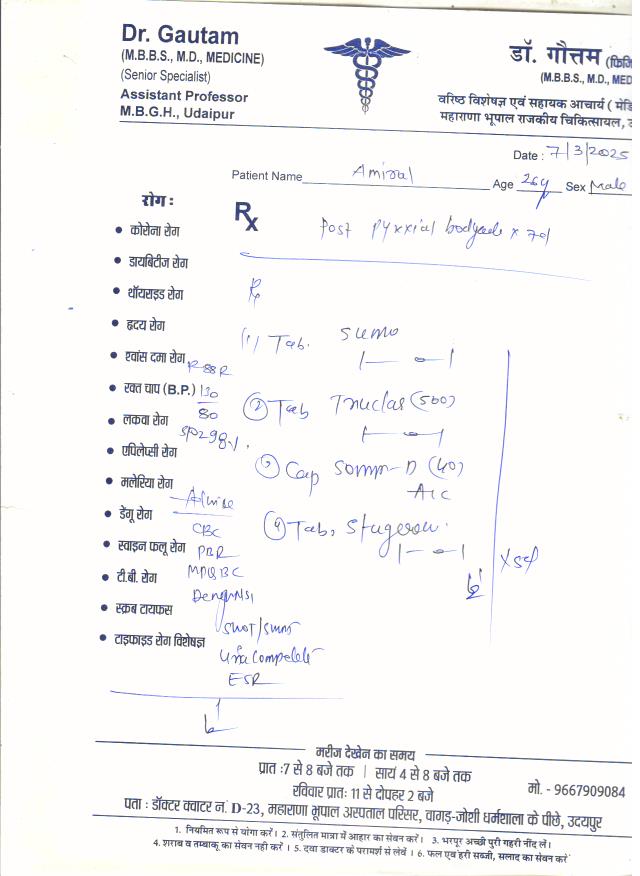 Dr. Gautam
(M.B.B.S., M.D., MEDICINE)
(Senior Specialist)
Assistant Professor
M.B.G.H., Udaipur
डॉ. गौत्तम (फिजि
(M.B.B.S., M.D., MED
वरिष्ठ विशेषज्ञ एवं सहायक आचार्य ( मेडि
महाराणा भूपाल राजकीय चिकित्सायल, उ
Date : 7/3/2025
Patient Name Amiral Age 26y Sex Male
रोग :
Rx
Post Pyrexial x 7d
• कोरोना रोग
• डायबिटीज रोग
• थॉयराइड रोग
Rx
• हृदय रोग
(1) Tab. Sumo
1 — 0 — 1
• श्वांस दमा रोग
• रक्त चाप (B.P.) 130/80
(2) Tab (500)
1 — 0 — 1
• लकवा रोग
SPO2 98%
• एपिलेप्सी रोग
(3) Cap Somm-D (40)
A/C
• मलेरिया रोग
Advise
• डेंगू रोग
(4) Tab. Stugeron
1 — 0 — 1
CBC
• स्वाइन फलू रोग
PBR
x 5d
• टी.बी. रोग
MPQBC
Dengue NS1
• स्क्रब टायफस
SGOT/SGPT
• टाइफाइड रोग विशेषज्ञ
Urine Complete
ESR
मरीज देखेन का समय
प्रात :7 से 8 बजे तक | सायं 4 से 8 बजे तक
रविवार प्रातः 11 से दोपहर 2 बजे
मो. - 9667909084
पता : डॉक्टर क्वाटर नं. D-23, महाराणा भूपाल अस्पताल परिसर, वागड़-जोशी धर्मशाला के पीछे, उदयपुर
1. नियमित रूप से योगा करें। 2. संतुलित मात्रा में आहार का सेवन करें। 3. भरपूर अच्छी पुरी गहरी नींद लें।
4. शराब व तम्बाकू का सेवन नही करें । 5. दवा डाक्टर के परामर्श से लेवें । 6. फल एवं हरी सब्जी, सलाद का सेवन करें